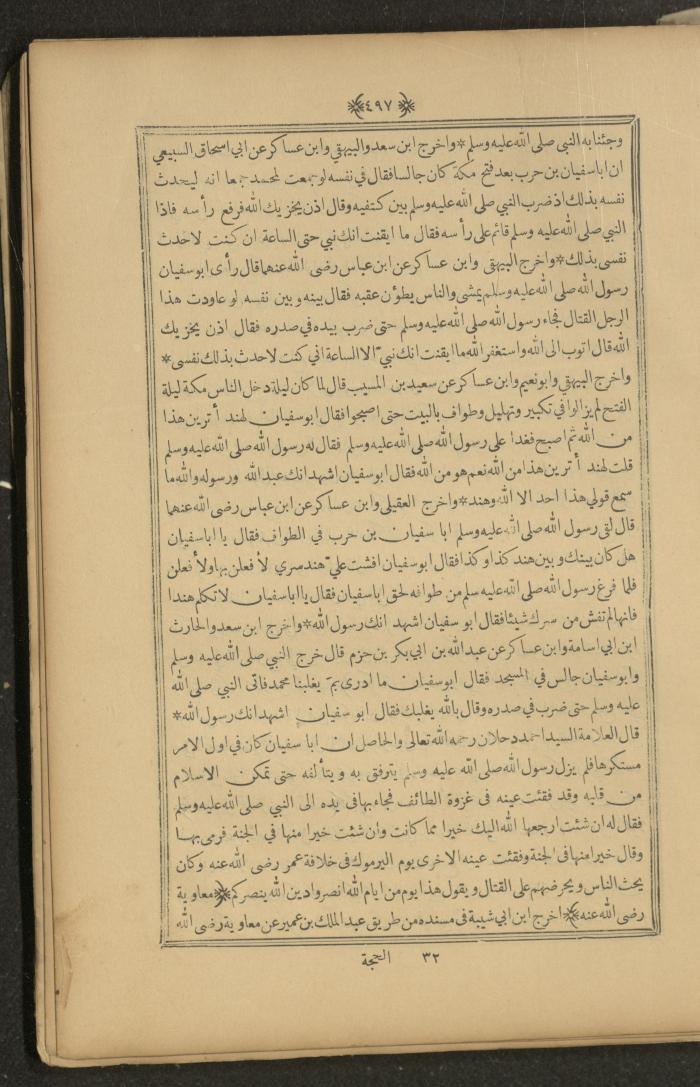 ﴿٤٩٧﴾
وجئنا به النبى صلى الله عليه وسلم * واخرج ابن سعد والبيهقى وابن عساكر عن ابي اسحاق السبيعي
ان اباسفيان بن حرب بعد فتح مكة كان جالسا فقال في نفسه لوجمعت لمحمد جمعا انه ليحدث
نفسه بذلك اذ ضرب النبي صلى الله عليه وسلم بين كتفيه وقال اذن يخزيك الله فرفع رأسه فاذا
النبي صلى الله عليه وسلم قائم على رأسه فقال ما ايقنت انك نبي حتى الساعة ان كنت لاحدث
نفسى بذلك * واخرج البيهقى وابن عساكر عن ابن عباس رضى الله عنهما قال رأى ابو سفيان
رسول الله صلى الله عليه وسلم يمشى والناس يطؤن عقبه فقال بينه وبين نفسه لو عاودت هذا
الرجل القتال فجاء رسول الله صلى الله عليه وسلم حتى ضرب بيده في صدره فقال اذن يخزيك
الله قال اتوب الى الله واستغفر الله ما ايقنت انك نبيّ الا الساعة اني كنت لاحدث بذلك نفسى *
واخرج البيهقى وابونعيم وابن عساكر عن سعيد بن المسيب قال لما كان ليلة دخل الناس مكة ليلة
الفتح لم يزالوا في تكبير وتهليل وطواف بالبيت حتى اصبحوا فقال ابوسفيان لهند أترين هذا
من الله ثم اصبح فغدا على رسول الله صلى الله عليه وسلم فقال له رسول الله صلى الله عليه وسلم
قلت لهند أترين هذا من الله نعم هو من الله فقال ابوسفيان اشهد انك عبد الله ورسوله والله ما
سمع قولي هذا احد الا الله وهند * واخرج العقيلى وابن عساكر عن ابن عباس رضى الله عنهما
قال لقى رسول الله صلى الله عليه وسلم ابا سفيان بن حرب في الطواف فقال يا اباسفيان
هل كان بينك وبين هند كذا وكذا فقال ابوسفيان افشت عليّ هند سري لأفعلن بها ولأفعلن
فلما فرغ رسول الله صلى الله عليه وسلم من طوافه لحق اباسفيان فقال يا اباسفيان لا تكلم هندا
فانها لم تفش من سرك شيئا فقال ابو سفيان اشهد انك رسول الله * واخرج ابن سعد والحارث
ابن ابي اسامة وابن عساكر عن عبد الله بن ابي بكر بن حزم قال خرج النبي صلى الله عليه وسلم
وابوسفيان جالس في المسجد فقال ابوسفيان ما ادرى بمَ يغلبنا محمد فاتى النبي صلى الله
عليه وسلم حتى ضرب في صدره وقال بالله يغلبك فقال ابو سفيان اشهد انك رسول الله *
قال العلامة السيد احمد دحلان رحمه الله تعالى والحاصل ان ابا سفيان كان في اول الامر
مستكرها فلم يزل رسول الله صلى الله عليه وسلم يترفق به ويتألفه حتى تمكن الاسلام
من قلبه وقد فقئت عينه فى غزوة الطائف فجاء بها فى يده الى النبي صلى الله عليه وسلم
فقال له ان شئت ارجعها الله اليك خيرا مما كانت وان شئت خيرا منها في الجنة فرمى بها
وقال خيرا منها فى الجنة وفقئت عينه الاخرى يوم اليرموك فى خلافة عمر رضى الله عنه وكان
يحث الناس ويحرضهم على القتال ويقول هذا يوم من ايام الله انصروا دين الله ينصركم ﴿معاوية
رضى الله عنه﴾ اخرج ابن ابي شيبة فى مسنده من طريق عبد الملك بن عمير عن معاوية رضى الله
٣٢ الحجة